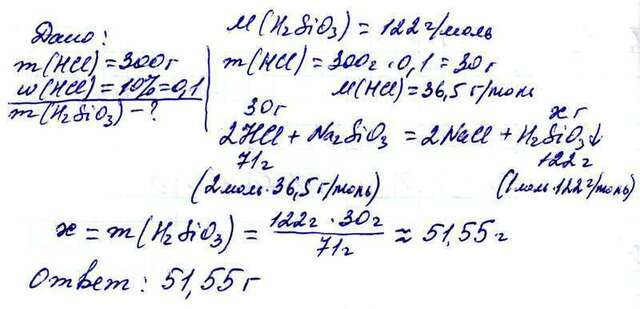 Дано:
m(HCl) = 300г
w(HCl) = 10% = 0,1
m(H₂SiO₃) - ?
M(H₂SiO₃) = 122 г/моль
m(HCl) = 300г · 0,1 = 30г
M(HCl) = 36,5 г/моль
30г x г
2HCl + Na₂SiO₃ = 2NaCl + H₂SiO₃↓
71г 122г
(2моль·36,5г/моль) (1моль·122г/моль)
x = m(H₂SiO₃) = 122г · 30г / 71г ≈ 51,55г
Ответ: 51,55г